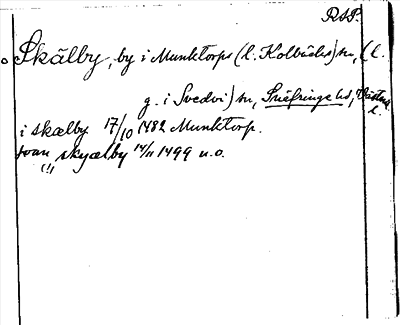 RAP.
Skälby, by i Munktorps (l. Kolbäcks) sn, (l.
g. i Svedvi) sn, Snefringe hd, Västm.
l.
i skælby 17/10 1482 Munktorp.
skyælby 14/11 1499 u.o.
(!)